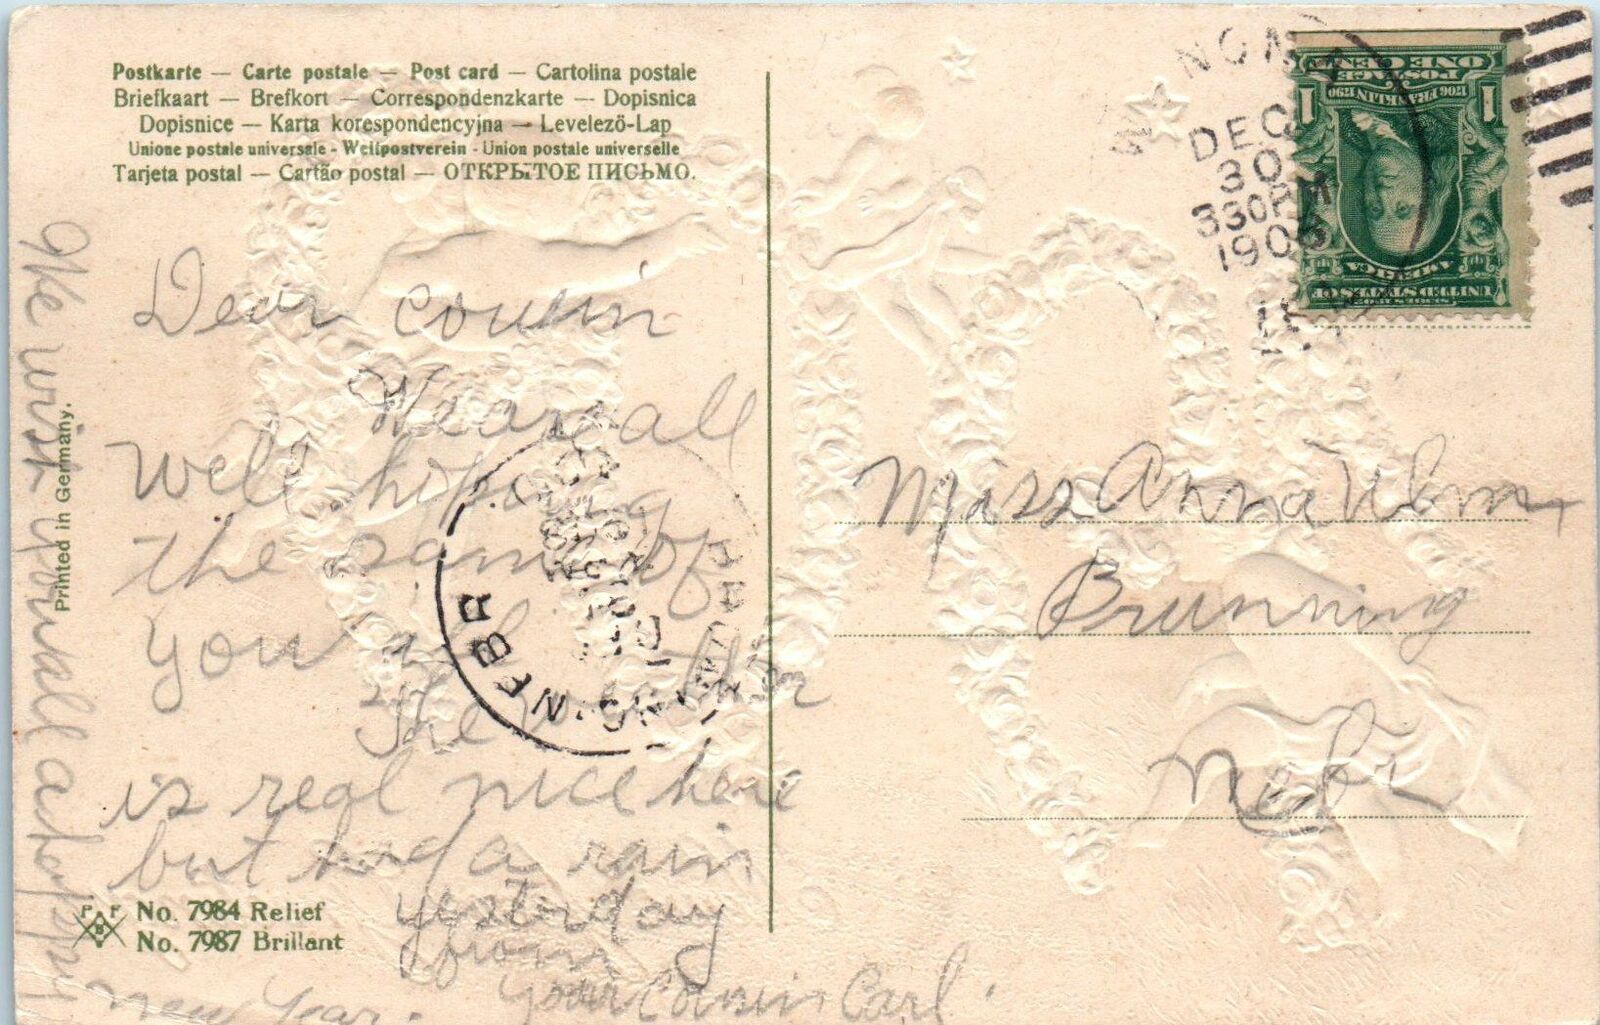 Postkarte — Carte postale — Post card — Cartolina postale
Briefkaart — Brefkort — Correspondenzkarte — Dopisnica
Dopisnice — Karta korespondencyjna — Levelező-Lap
Unione postale universale - Weltpostverein - Union postale universelle
Tarjeta postal — Cartão postal — ОТКРЫТОЕ ПИСЬМО.
Dear cousin
We are all
well hoping
the same of
you all
The
is real nice here
but had a rain
yesterday
from
your Cousin Carl.
We wish you all a happy
new year.
Printed in Germany.
P F B
No. 7984 Relief
No. 7987 Brillant
DEC
30
330PM
1906
POSTAGE
ONE CENT
1706 FRANKLIN 1790
1 1
SERIES 1902
UNITED STATES OF
AMERICA
Miss Anna
Brunning
Nebr
NEBR.